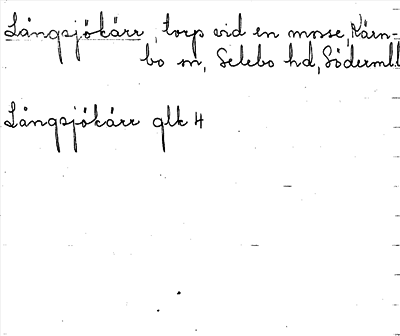 Långsjökärr, torp vid en mosse, Kärn-
bo sn, Selebo hd, Söderml.
Långsjökärr glk 4